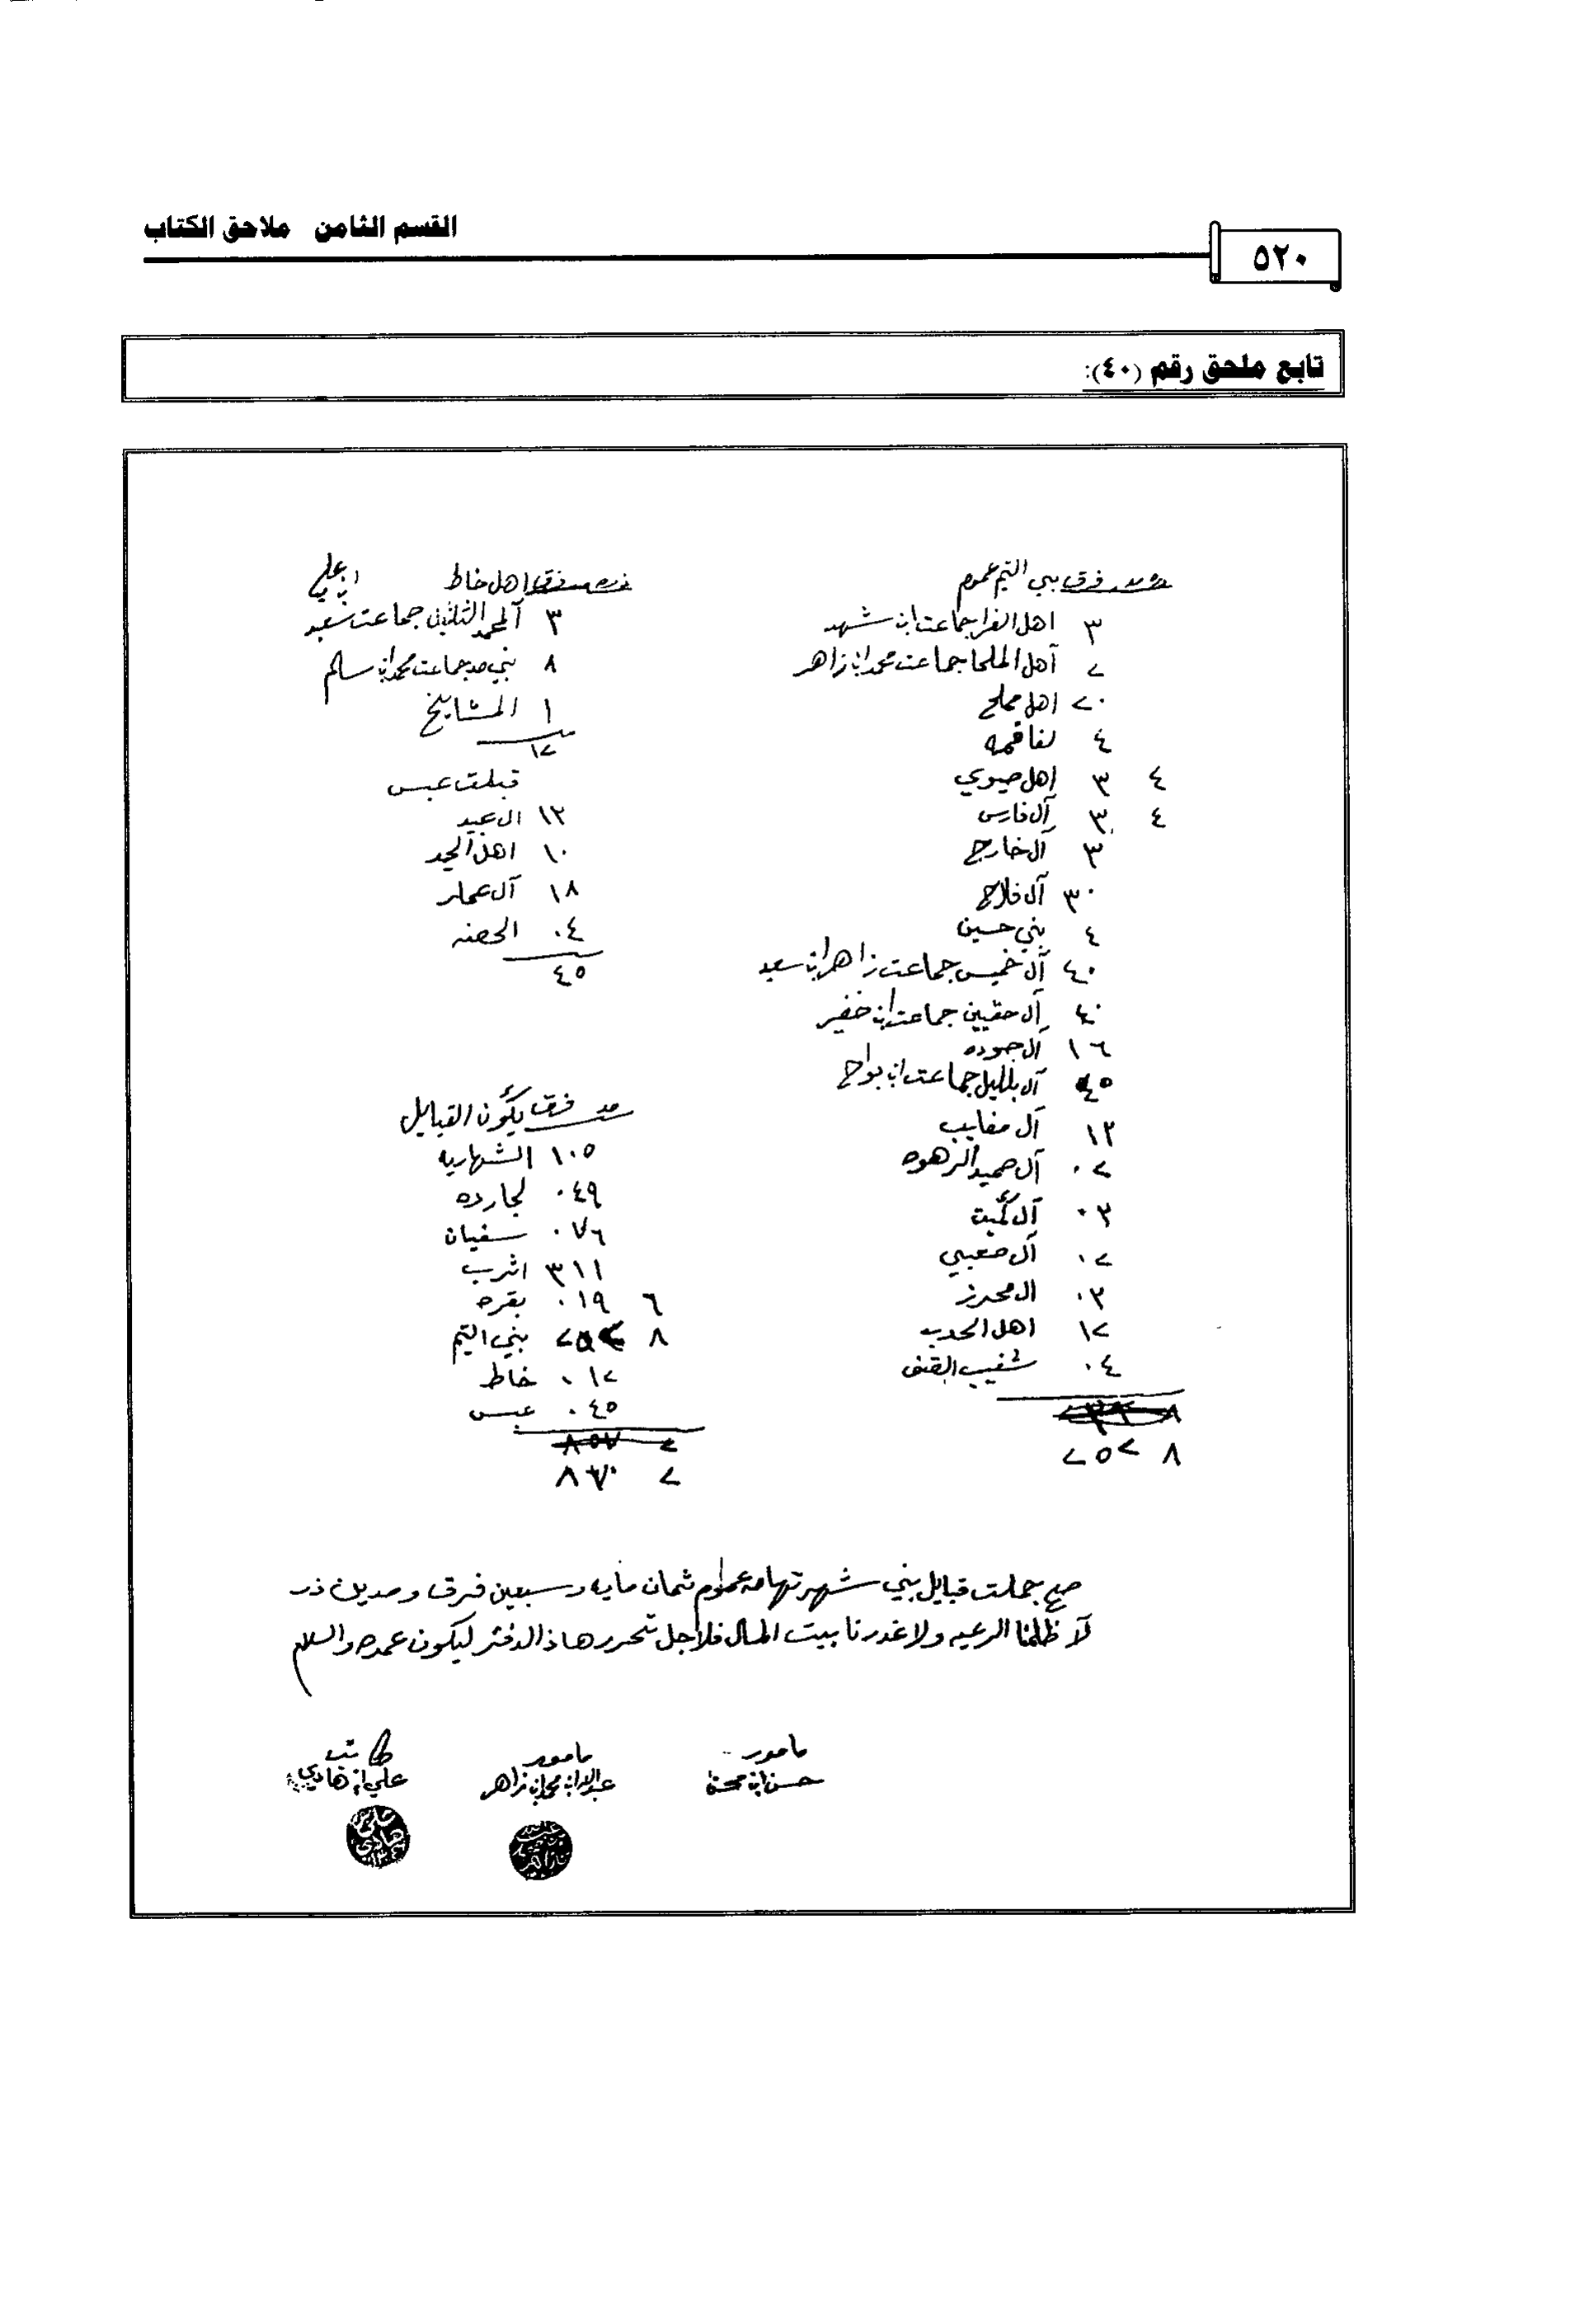 القسم الثامن ملاحق الكتاب
٥٢٠
تابع ملحق رقم (٤٠):
فرق بني التيم عموم
٣ اهل الفرا جماعت ابن شهد
٢ آهل الملحا جماعت محمد ابن زاهر
٢٠ اهل مملح
٤ لفاقمه
٤ ٣ اهل صيوي
٤ ٣ آل فارس
٣ آل خارج
٣٠ آل فلاح
٤ بني حسين
٤٠ آل خميس جماعت زاهر ابن سعيد
٤٠ آل حقيين جماعت ابن خفير
١٦ آل جوده
٤٥ آل بلليل جماعت ابن بواح
١٢ آل مغايب
٠٢ آل حميد الزهوه
٠٣ آل كميت
٠٢ آل صعبي
٠٣ ال محرز
١٢ اهل الحدب
٠٤ شغيب القنف
٨ ٢٥٢
ذره مد فرق اهل خاط
٣ آلمحمد الثلثين جماعت سعيد ابن علي
٨ بني مد جماعت محمد ابن سالم
١ المشايخ
١٢
قبلت عبس
١٣ ال عبيد
١٠ اهل الحد
١٨ آل عمار
٠٤ الحصنه
٤٥
مد فرق يكون القبايل
١٠٥ الشهاريه
٠٤٩ لجارده
٠٧٦ سفيان
٣١١ اثرب
٦ ٠١٩ بقره
٨ ٢٥٢ بني التيم
٠١٢ خاط
٠٤٥ عبس
٢ ٨٥٧
٢ ٨٧٠
صح جملت قبايل بني شهر تهامه عموم ثمان مايه وسبعين فرق ومدين ذره
لا ظلمنا الرعيه ولا غدرنا بيت المال فلاجل تحرر هاذا الدفتر ليكون عمده والسلام
مامور
حسن ابن محسنه
مامور
عبدالله ابن محمد ابن زاهر
كاتب
علي ابن هادي